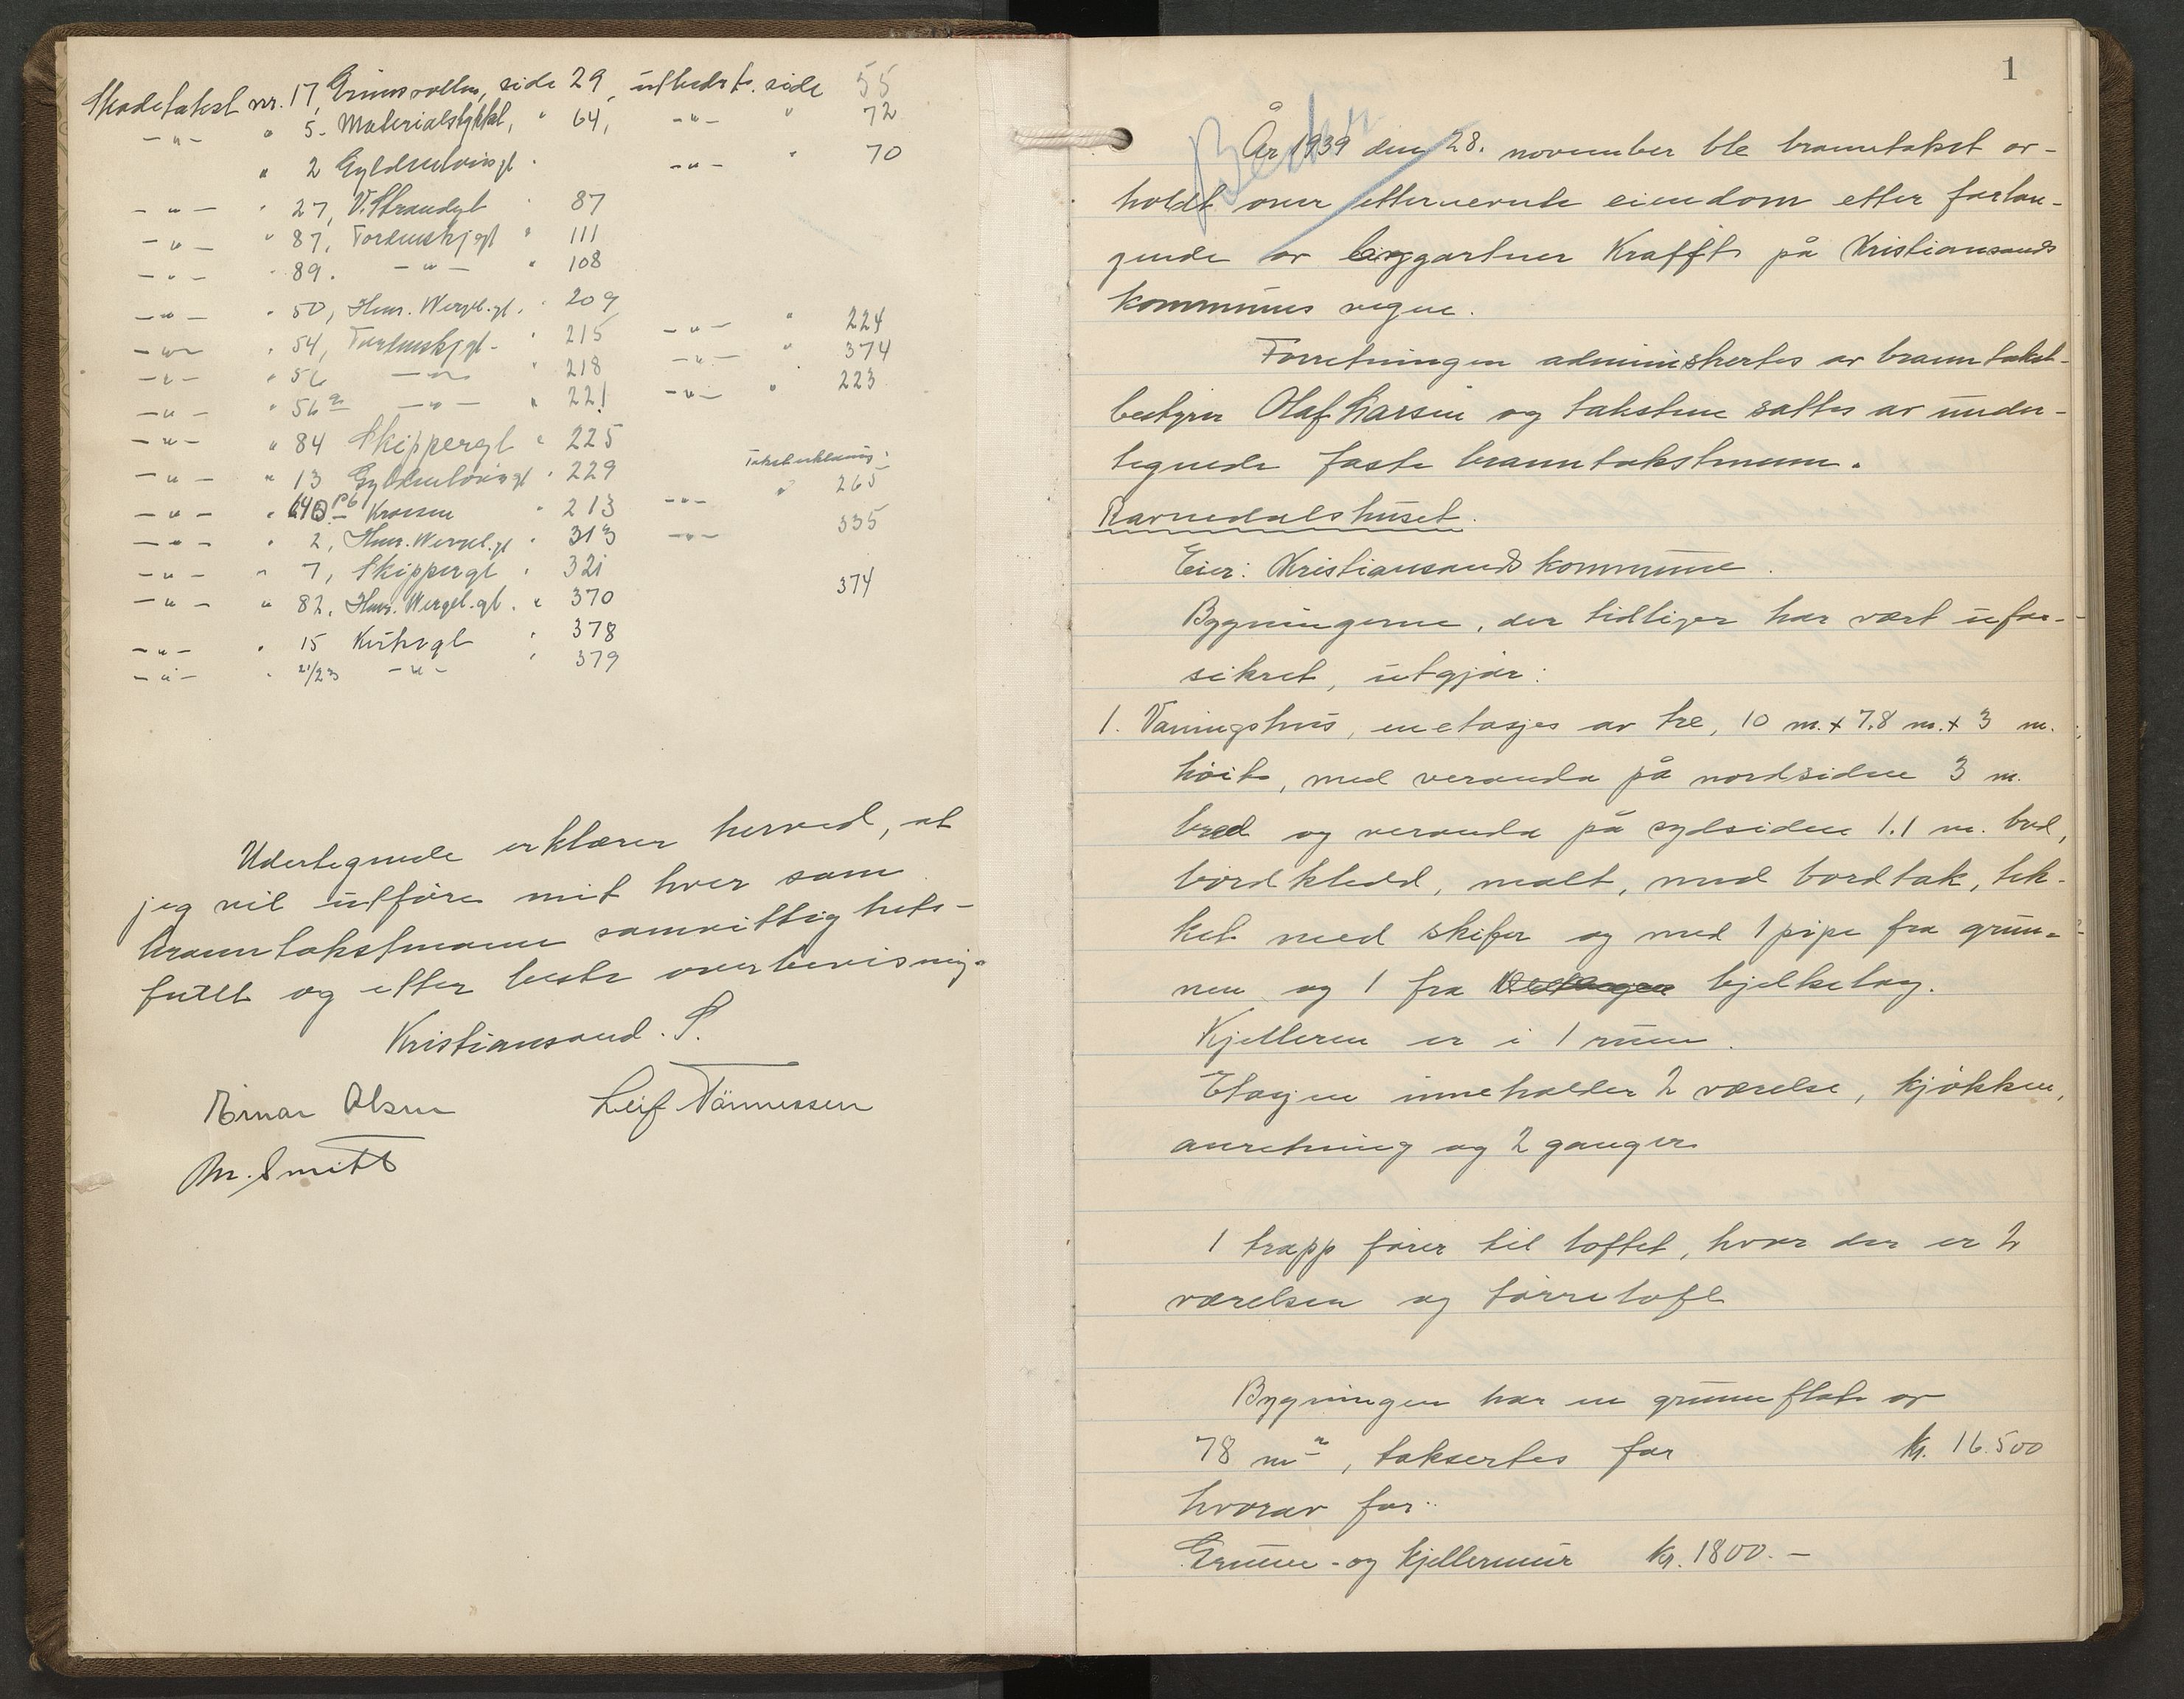 Skadetakst nr. 17, Grimsvollen, side 29, utbedrt. side 55
-"- " 5. Materialstykket, " 64, -"- " 72
" 2 Gyldenløvsgt. -"- " 70
-"- " 27, V. Strandgt " 87
-"- " 87, Tordenskj.gt " 111
-"- " 89. -"- " 108
-"- " 50, Henr. Wergel.gt. " 209
-"- " 54, Tordenskj.gt. " 215 -"- " 224
-"- " 56 -"- " 218 -"- " 374
-"- " 56a -"- " 221 -"- " 223
-"- " 84 Skippergt " 225
-"- " 13 Gyldenløvsgt " 229
-"- " Krossen " 213 -"- " 265
-"- " 2, Henr. Wergel.gt " 313 -"- 335
-"- " 7, Skippergt " 321
-"- " 82, Henr. Wergel.gt. " 370 374
-"- " 15 Kirkegt " 378
-"- " 21/23 -"- " 379
Udertegnede erklærer herved, at
jeg vil utføre mit hver som
branntakstmann samvittighets-
fullt og etter beste overbevisning.
Kristiansand. S.
Einar Olsen Leif Tönnessen
M. Smitt
1
År 1939 den 28. november ble branntakst av-
holdt over etternevnte eiendom etter forlan-
gende av bygartner Krafft på Kristiansands
kommunes vegne.
Forretningen administrertes av branntakst-
bestyrer Olaf Larsen og takstene sattes av under-
tegnede faste branntakstmenn.
Ravnedalshuset.
Eier: Kristiansands kommune.
Bygningerne, der tidliger har vært ufor-
sikret, utgjør:
1. Vaningshus, enetasjes av tre, 10 m. x 7.8 m. x 3 m.
høit, med veranda på nordsiden 3 m.
bred og veranda på sydsiden 1.1 m. bred,
bordkledd, malt, med bordtak, tek-
ket med skifer og med 1 pipe fra grun-
nen og 1 fra bjelkelag.
Kjelleren er i 1 rum.
Etasjen inneholder 2 værelse, kjøkken,
anretning og 2 ganger
1 trapp fører til loftet, hvor der er 2
værelsen og tørreloft
Bygningen har en grunnflate av
78 m², taksertes for kr. 16.500
hvorav for:
Grunn- og kjellermur kr. 1800.-